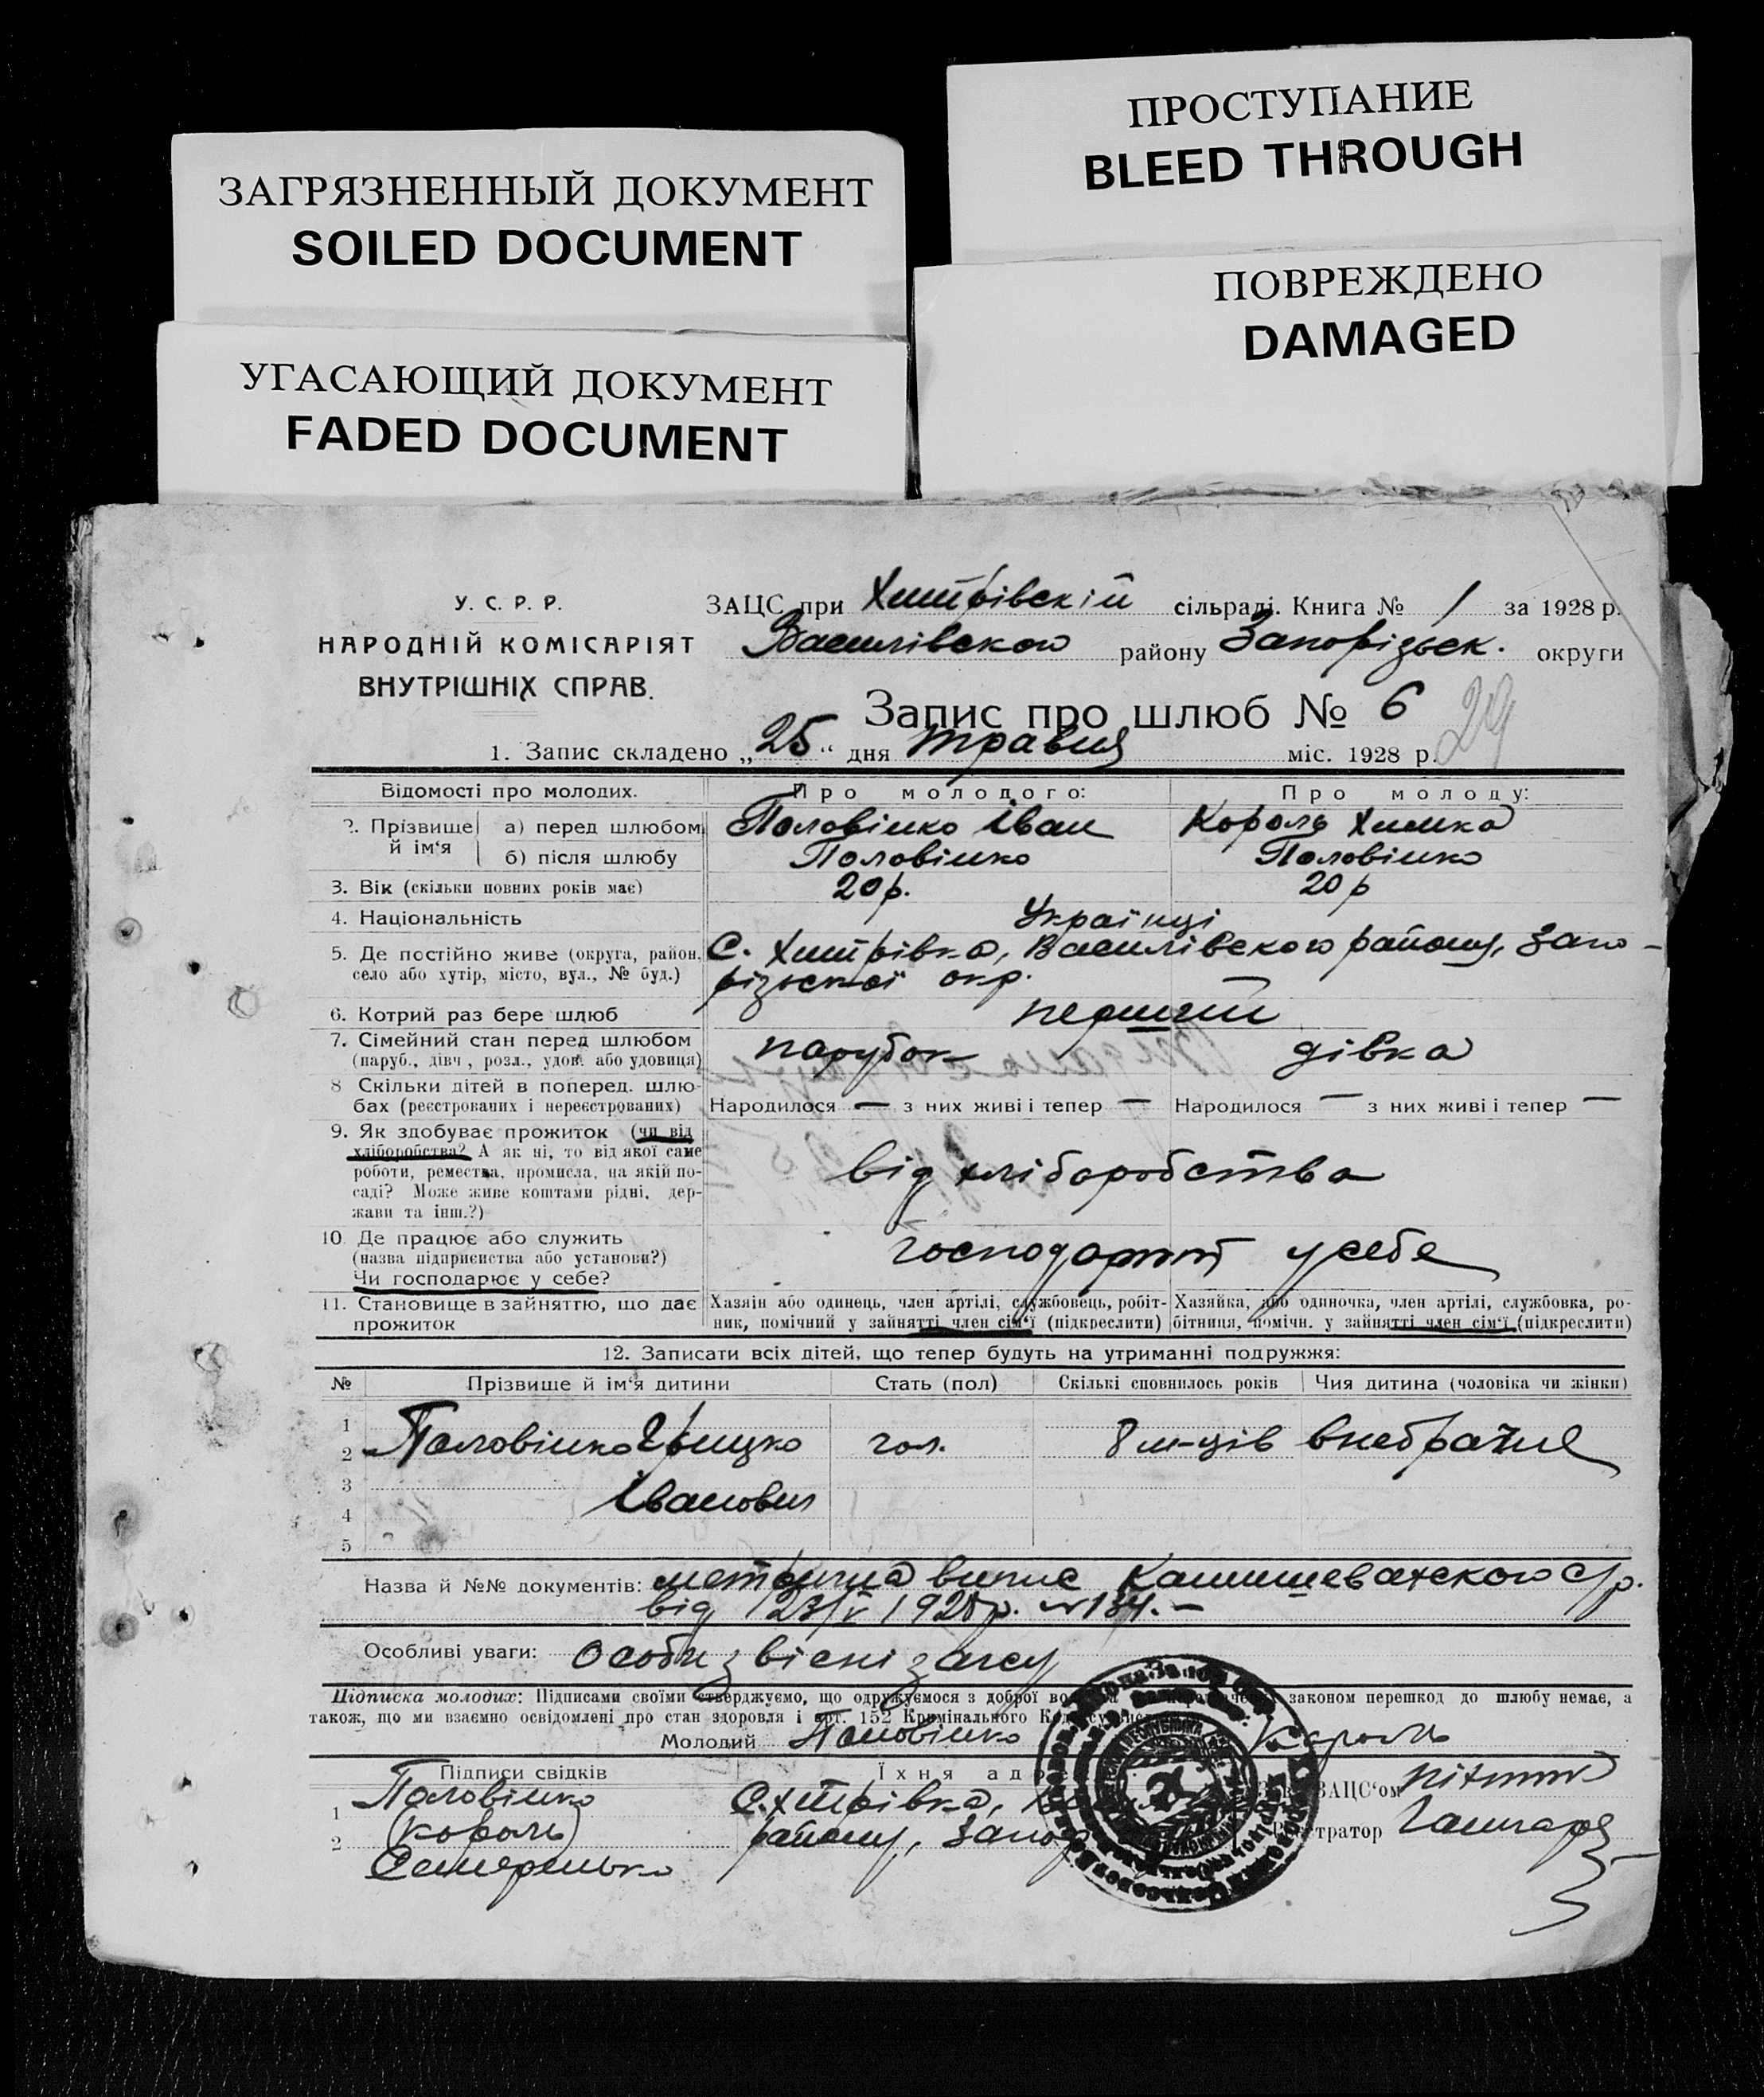 ПРОСТУПАНИЕ
BLEED THROUGH
ЗАГРЯЗНЕННЫЙ ДОКУМЕНТ
SOILED DOCUMENT
ПОВРЕЖДЕНО
DAMAGED
УГАСАЮЩИЙ ДОКУМЕНТ
FADED DOCUMENT
У. С. Р. Р.
НАРОДНІЙ КОМІСАРІЯТ
ВНУТРІШНІХ СПРАВ.
ЗАЦС при Хитрівскій сільраді. Книга № 1 за 1928 р.
Василівского району Запорізьск. округи
Запис про шлюб № 6
29
1. Запис складено „25“ дня травня міс. 1928 р.
Відомості про молодих. Про молодого: Про молоду:
2. Прізвище й ім‘я а) перед шлюбом Половінко Іван Король Химка
б) після шлюбу Половінко Половінко
3. Вік (скільки повних років має) 20 р. 20 р
4. Національність Українці
5. Де постійно живе (округа, район, С. Хитрівка, Василівского району, Запо-
село або хутір, місто, вул., № буд.) різьскої окр.
6. Котрий раз бере шлюб перший
7. Сімейний стан перед шлюбом парубок дівка
(паруб., дівч., розл., удов. або удовиця)
8 Скільки дітей в поперед. шлю-
бах (реєстрованих і нереєстрованих) Народилося — з них живі і тепер — Народилося — з них живі і тепер —
9. Як здобуває прожиток (чи від
хліборобства? А як ні, то від якої саме
роботи, ремества, промисла, на якій по- від хліборобства
саді? Може живе коштами рідні, дер-
жави та інш.?)
10. Де працює або служить
(назва підприємства або установи?) господарит у себе
Чи господарює у себе?
11. Становище в зайняттю, що дає Хазяїн або одинець, член артілі, службовець, робіт- Хазяйка, або одиночка, член артілі, службовка, ро-
прожиток ник, помічний у зайнятті член сім‘ї (підкреслити) бітниця, помічн. у зайнятті член сім‘ї (підкреслити)
12. Записати всіх дітей, що тепер будуть на утриманні подружжя:
№ Прізвище й ім‘я дитини Стать (пол) Скількі сповнилось років Чия дитина (чоловіка чи жінки)
1
2 Половінко Грицко чол. 8 м-ців внебрачне
3
Іванович
4
5
Назва й №№ документів: метрична випис Камишеватского с/р.
від 23/V 1928 р. № 134. —
Особливі уваги: Особи звісні загсу
Підписка молодих: Підписами своїми стверджуємо, що одружуємося з доброї законом перешкод до шлюбу немає, а
також, що ми взаємно освідомлені про стан здоровля і арт. 152 Кримінального
Молодий Половінко Король
Підписи свідків Їхня
1 Половінко С. Хитрівка, ЗАЦС‘ом
(король)
2 району, Регистратор